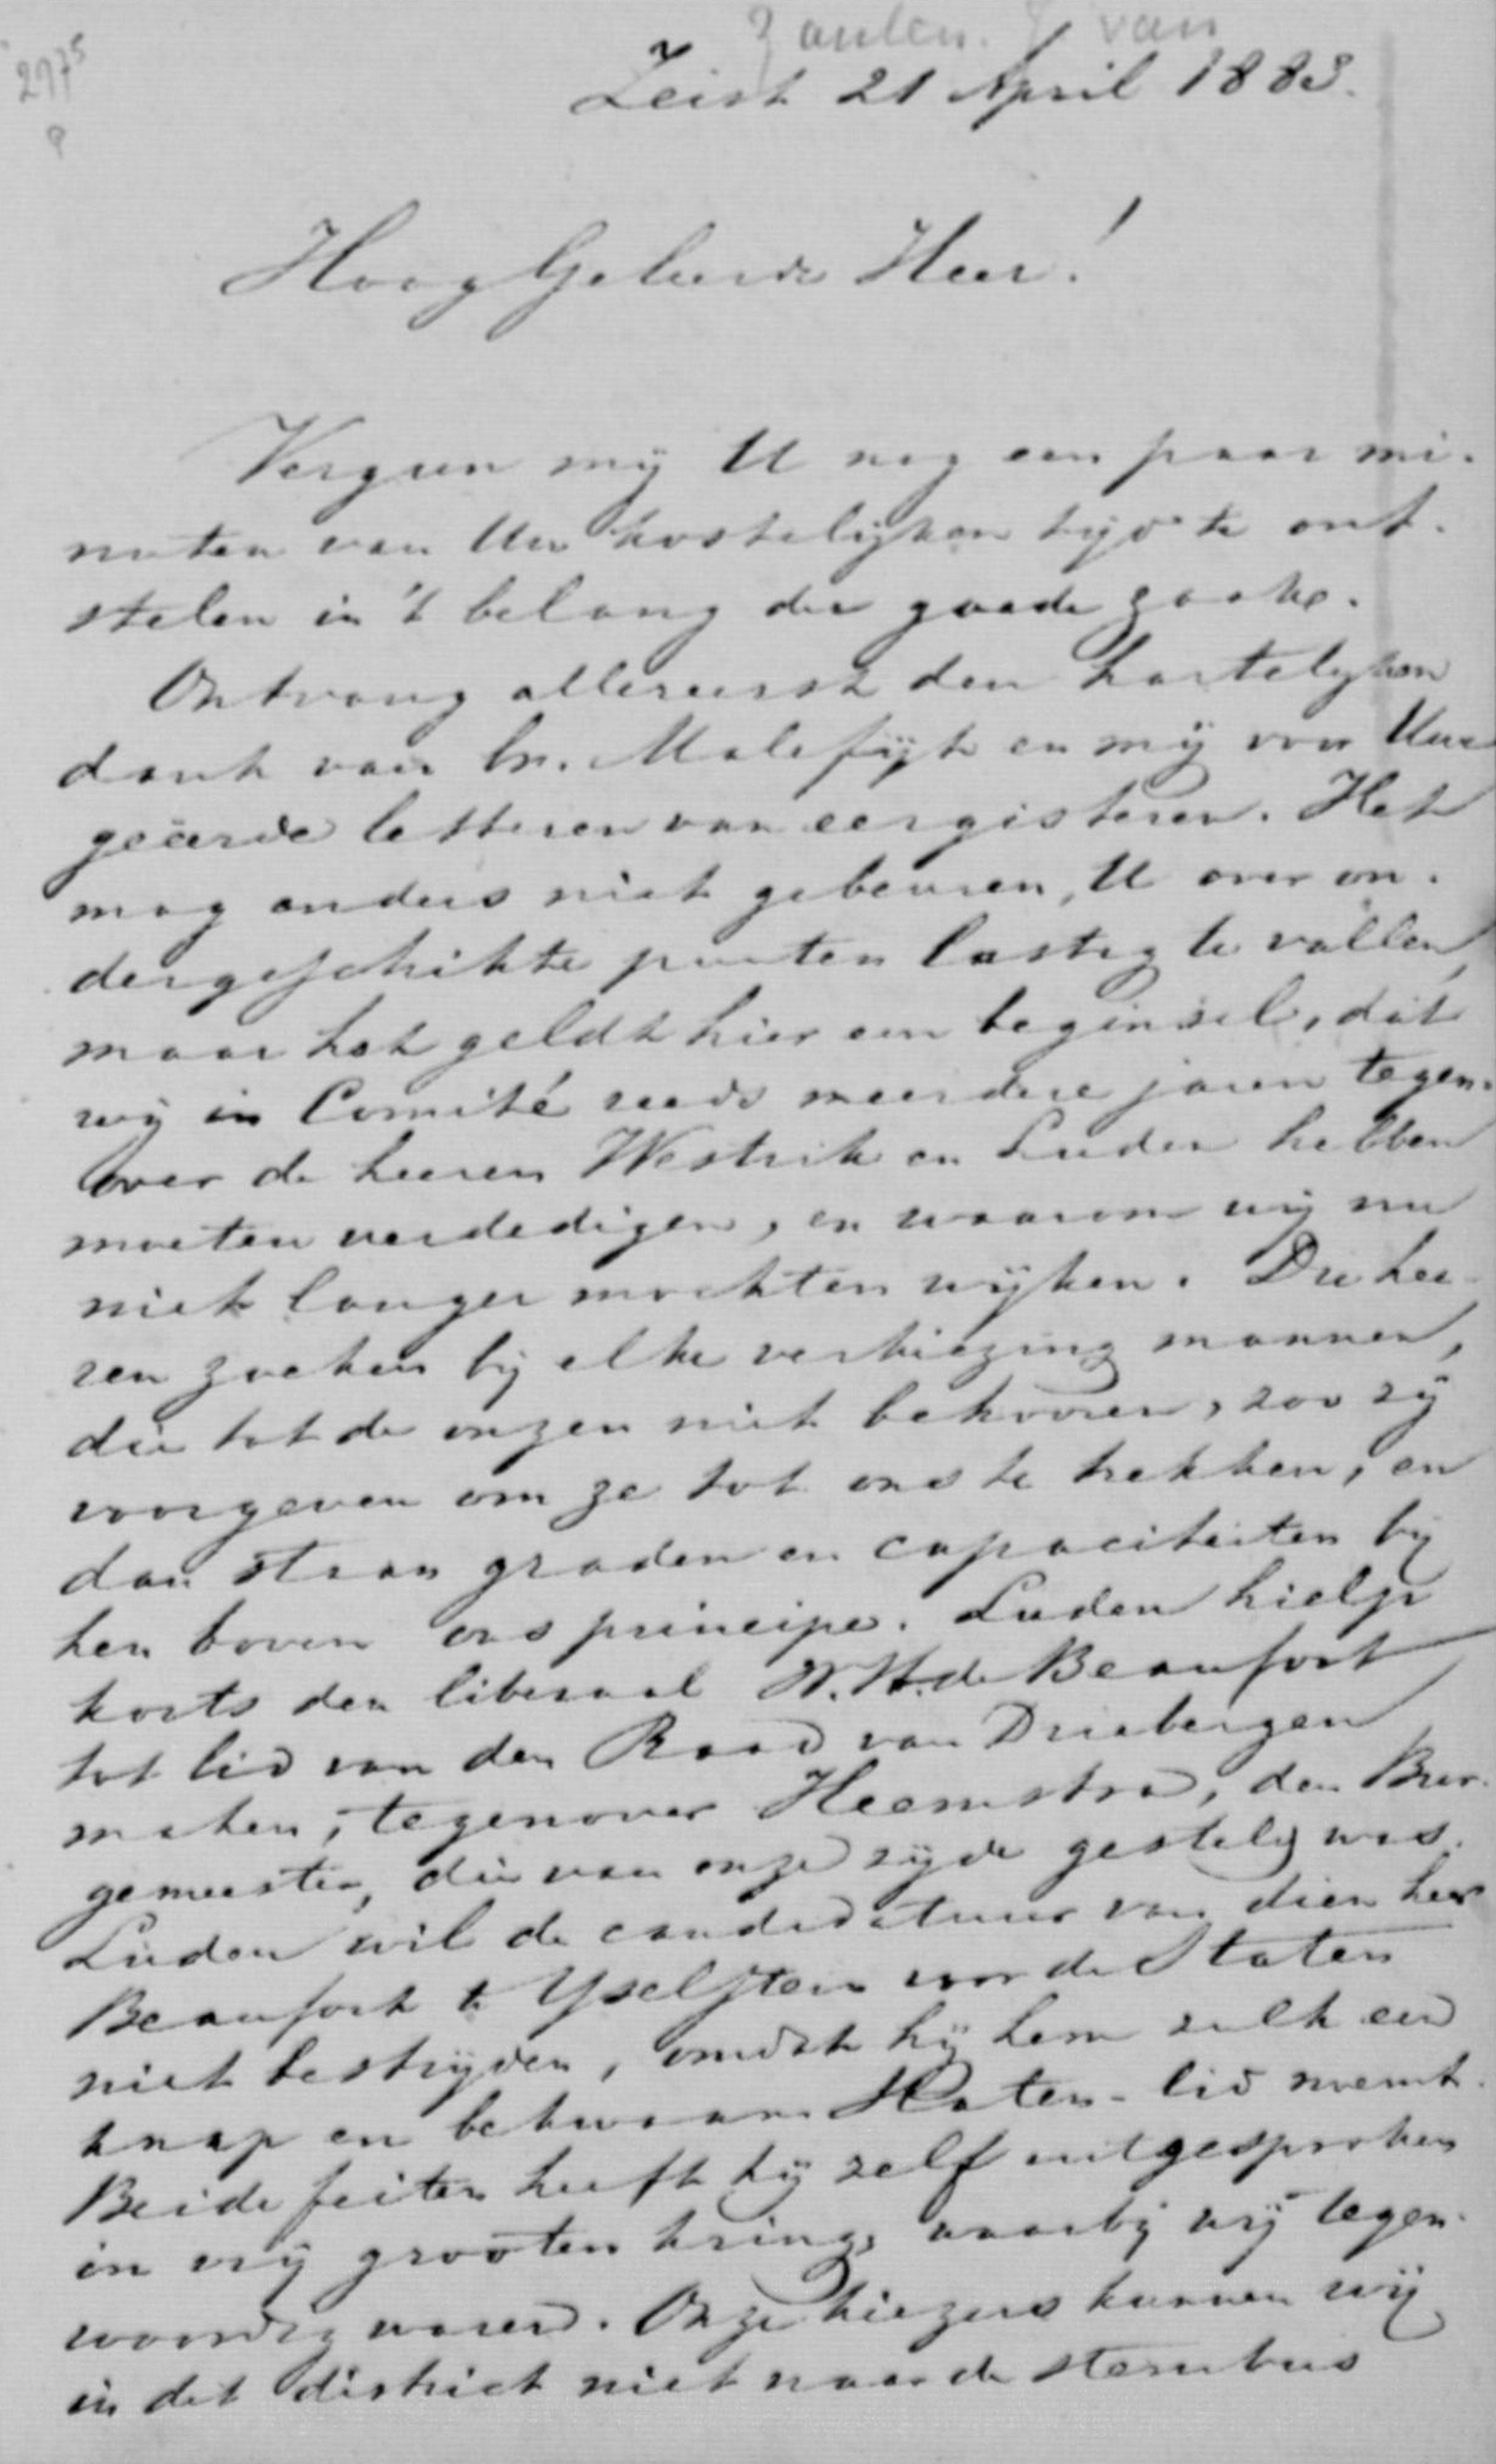 Zanten. J van
2975
Zeist 21 April 1883.
HoogGeleerde Heer!
Vergun mij U nog een paar mi-
nuten van Uw kostelijken tijd te ont-
stelen in 't belang der goede zaak.
Ontvang allereerst den hartelijken
dank van br. Malefijt en mij voor Uwe
geëerde letteren van eergisteren. Het
mag anders niet gebeuren, U over on-
dergeschikte punten lastig te vallen,
maar het geldt hier een beginsel, dat
wij in Comité reeds meerdere jaren tegen-
over de heeren Westrik en Luden hebben
moeten verdedigen, en waarom wij nu
niet langer mochten wijken. Die hee-
ren zoeken bij elke verkiezing mannen,
die tot de onzen niet behooren, zoo zij
voorgeven om ze tot ons te trekken, en
dan staan graden en capaciteiten bij
hen boven ons principe. Luden hielp
korts den liberaal W.H. de Beaufort
tot lid van den Raad van Driebergen
maken, tegenover Heemstra, den Bur-
gemeester, die van onze zijde gesteld was.
Luden wil de candidatuur van dien heer
Beaufort te Yselstein voor de Staten
niet bestrijden, omdat hij hem zulk een
knap en bekwaam Staten-lid noemt.
Beide feiten heeft hij zelf uitgesproken
in vrij grooten kring, waarbij wij tegen-
woordig waren. Onze kiezers kunnen wij
in dit district niet naar de stembus